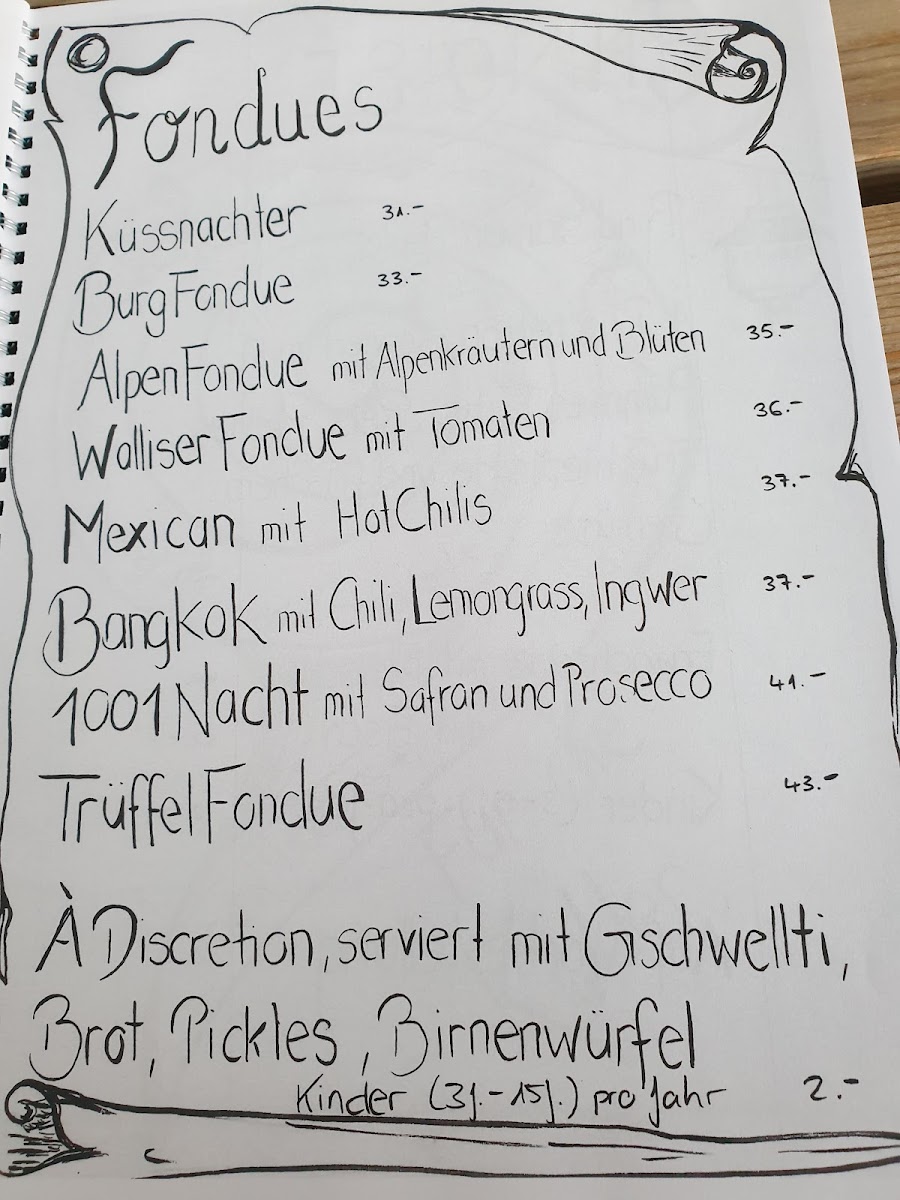 Fondues
Küssnachter 31.-
BurgFondue 33.-
AlpenFondue mit Alpenkräutern und Blüten 35.-
Walliser Fondue mit Tomaten 36.-
Mexican mit HotChilis 37.-
Bangkok mit Chili, Lemongrass, Ingwer 37.-
1001 Nacht mit Safran und Prosecco 41.-
TrüffelFondue 43.-
À Discretion, serviert mit Gschwellti,
Brot, Pickles, Birnenwürfel
Kinder (3j.-15j.) pro Jahr 2.-